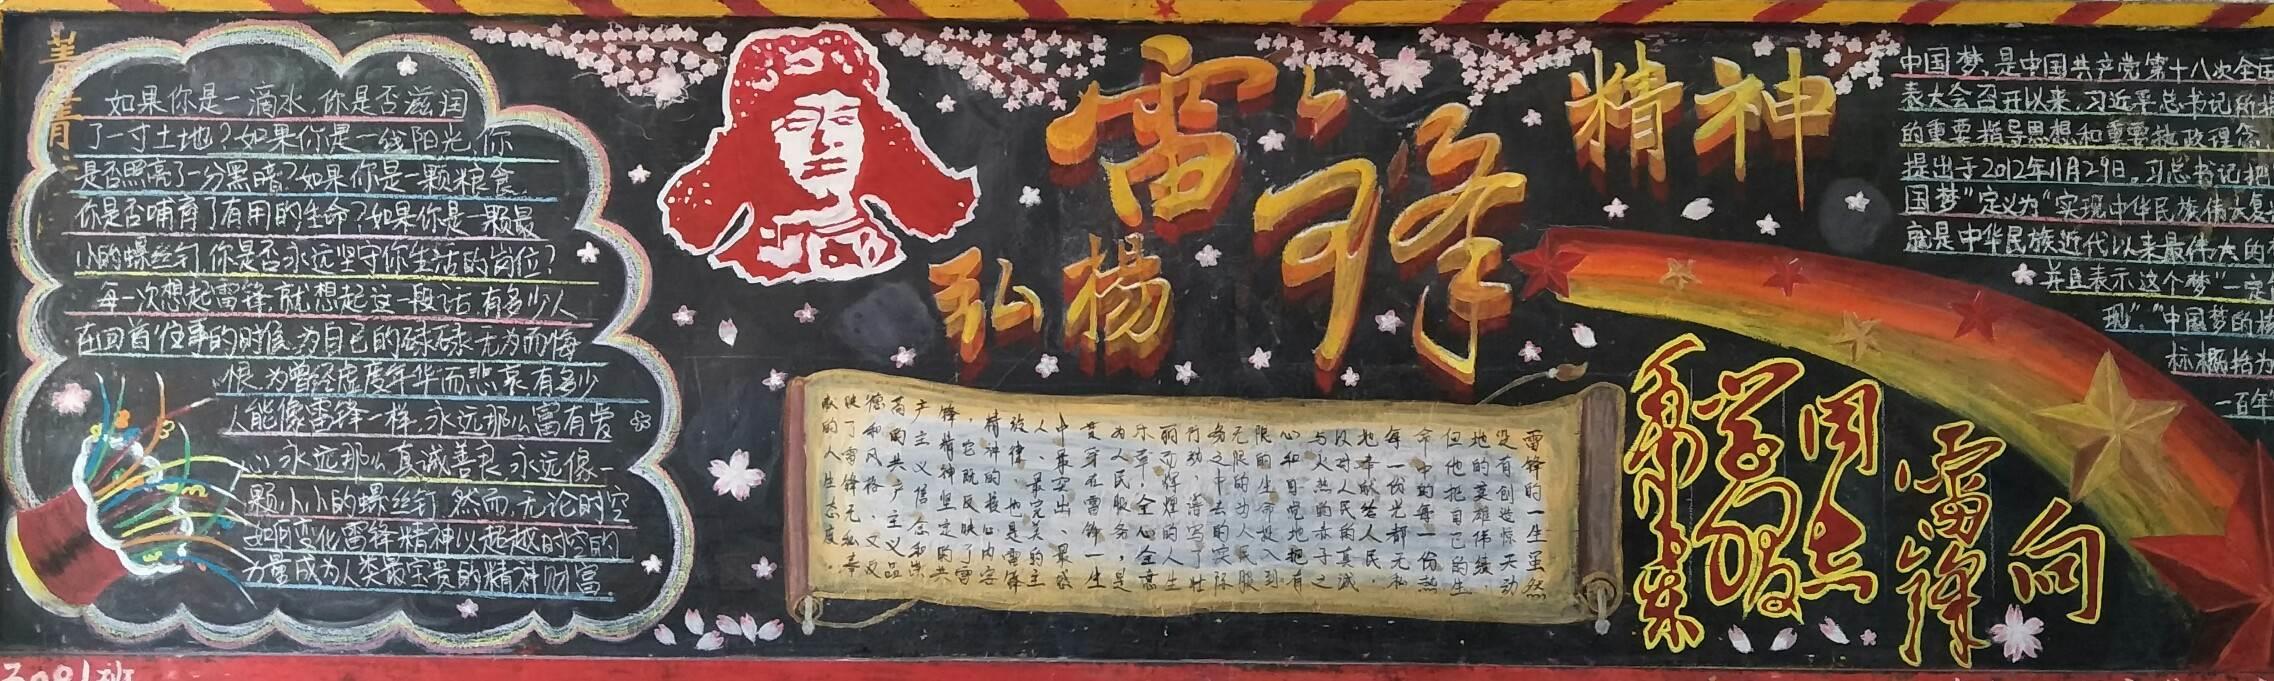 如果你是一滴水,你是否滋润
了一寸土地?如果你是一线阳光,你
是否照亮了一分黑暗?如果你是一颗粮食,
你是否哺育了有用的生命?如果你是一颗最
小的螺丝钉,你是否永远坚守你生活的岗位?
每一次想起雷锋,就想起这一段话,有多少人
在回首往事的时候,为自己的碌碌无为而悔
恨,为曾经虚度年华而悲哀,有多少
人能像雷锋一样,永远那么富有爱
心,永远那么真诚善良,永远像一
颗小小的螺丝钉,然而,无论时空
如何变化雷锋精神以超越时空的
力量成为人类最宝贵的精神财富.
弘揚
雷锋
精神
雷锋的一生虽然
没有创造惊天动
地的英雄伟绩,
但他把自己的生
命中的每一份热
每一份光都无私
地奉献给人民,
以对人民的真诚
与火热的赤子之
心和自觉地把有
限的生命投入到
无限的为人民服
务之中去的实际
行动,谱写了壮
丽而辉煌的人生
乐章!全心全意
为人民服务,是
贯穿在雷锋一生
中最突出、最感
人、最完美的主
旋律,也是雷锋
精神的核心内容
,它既反映了雷
锋精神坚定的共
产主义信念和
高的共产主义品
德和风格,又反
映了雷锋无私奉
献的人生态度.
中国梦,是中国共产党第十八次全国
表大会召开以来,习近平总书记所
的重要指导思想和重要执政理念,
提出于2012年11月29日,习总书记把
国梦"定义为"实现中华民族伟大复
就是中华民族近代以来最伟大的
并且表示这个梦"一定
现"."中国梦的
标概括为
一百年
向
雷锋
同志
学习
班